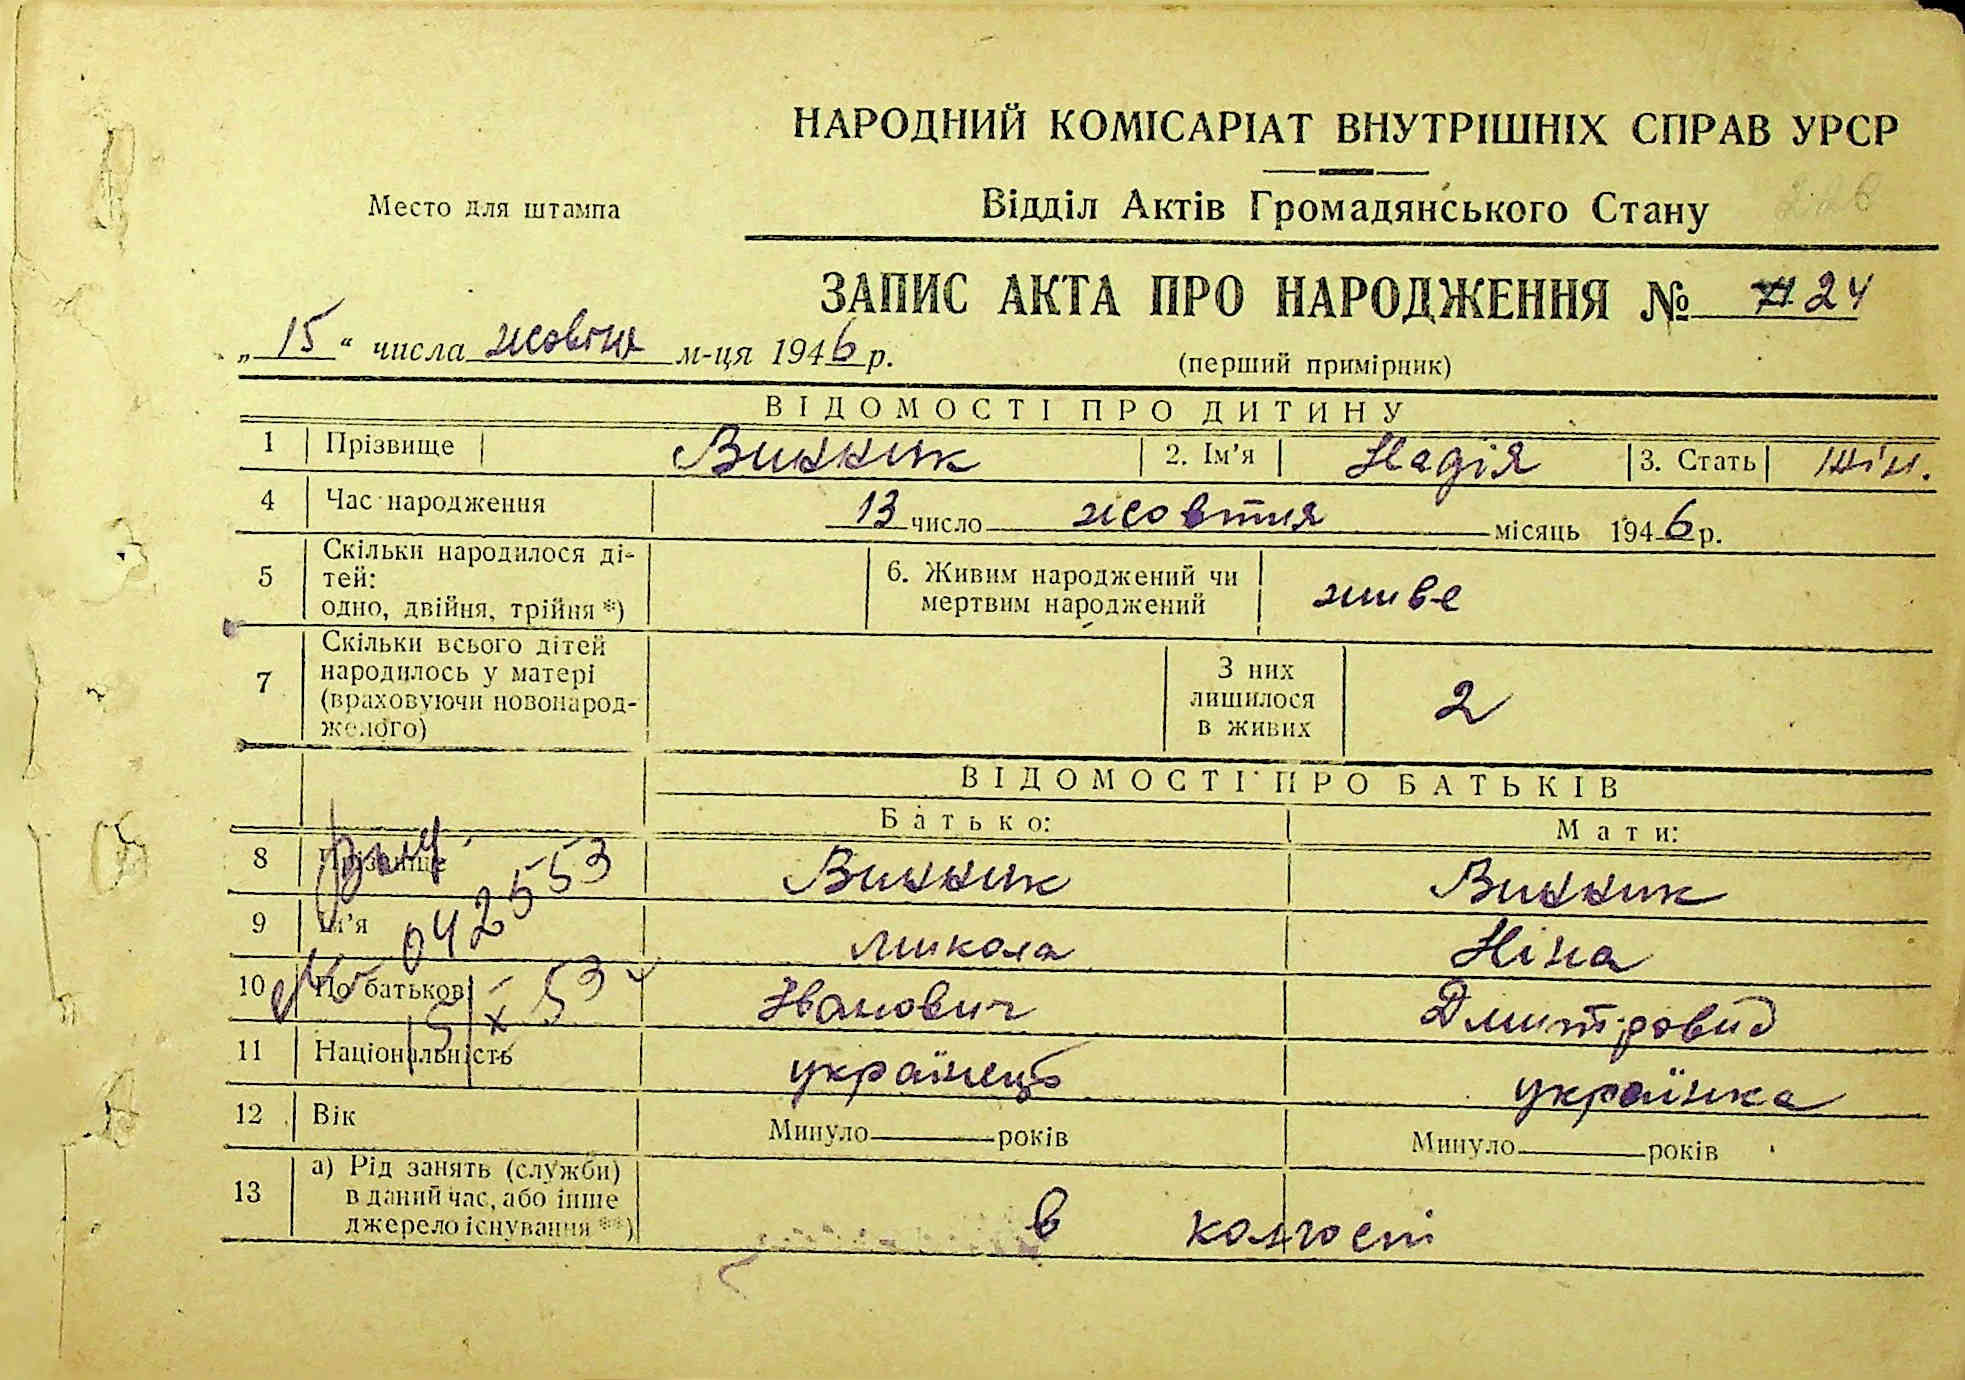 НАРОДНИЙ КОМІСАРІАТ ВНУТРІШНІХ СПРАВ УРСР
Место для штампа
Відділ Актів Громадянського Стану 226
ЗАПИС АКТА ПРО НАРОДЖЕННЯ № 24
„15“ числа жовтня м-ця 1946 р.
(перший примірник)
ВІДОМОСТІ ПРО ДИТИНУ
1 Прізвище Винник 2. Ім'я Надія 3. Стать жін.
4 Час народження 13 число жовтня місяць 1946 р.
5 Скільки народилося ді-
тей:
одно, двійня, трійня *)
6. Живим народжений чи
мертвим народжений
живе
7 Скільки всього дітей
народилось у матері
(враховуючи новонарод-
женого)
З них
лишилося
в живих
2
ВІДОМОСТІ ПРО БАТЬКІВ
Батько: Мати:
8 Прізвище Винник Винник
9 Ім'я Микола Ніна
10 По батькові Іванович Дмитровид
11 Національність українець українка
№ 042553
15/X 53
12 Вік Минуло років Минуло років
13 а) Рід занять (служби)
в даний час, або інше
джерело існування **)
в колгоспі